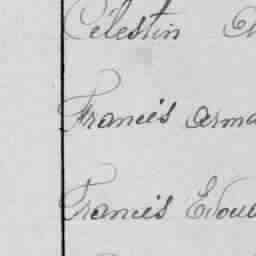 Célestin
Francis Arma
Francis Edoua